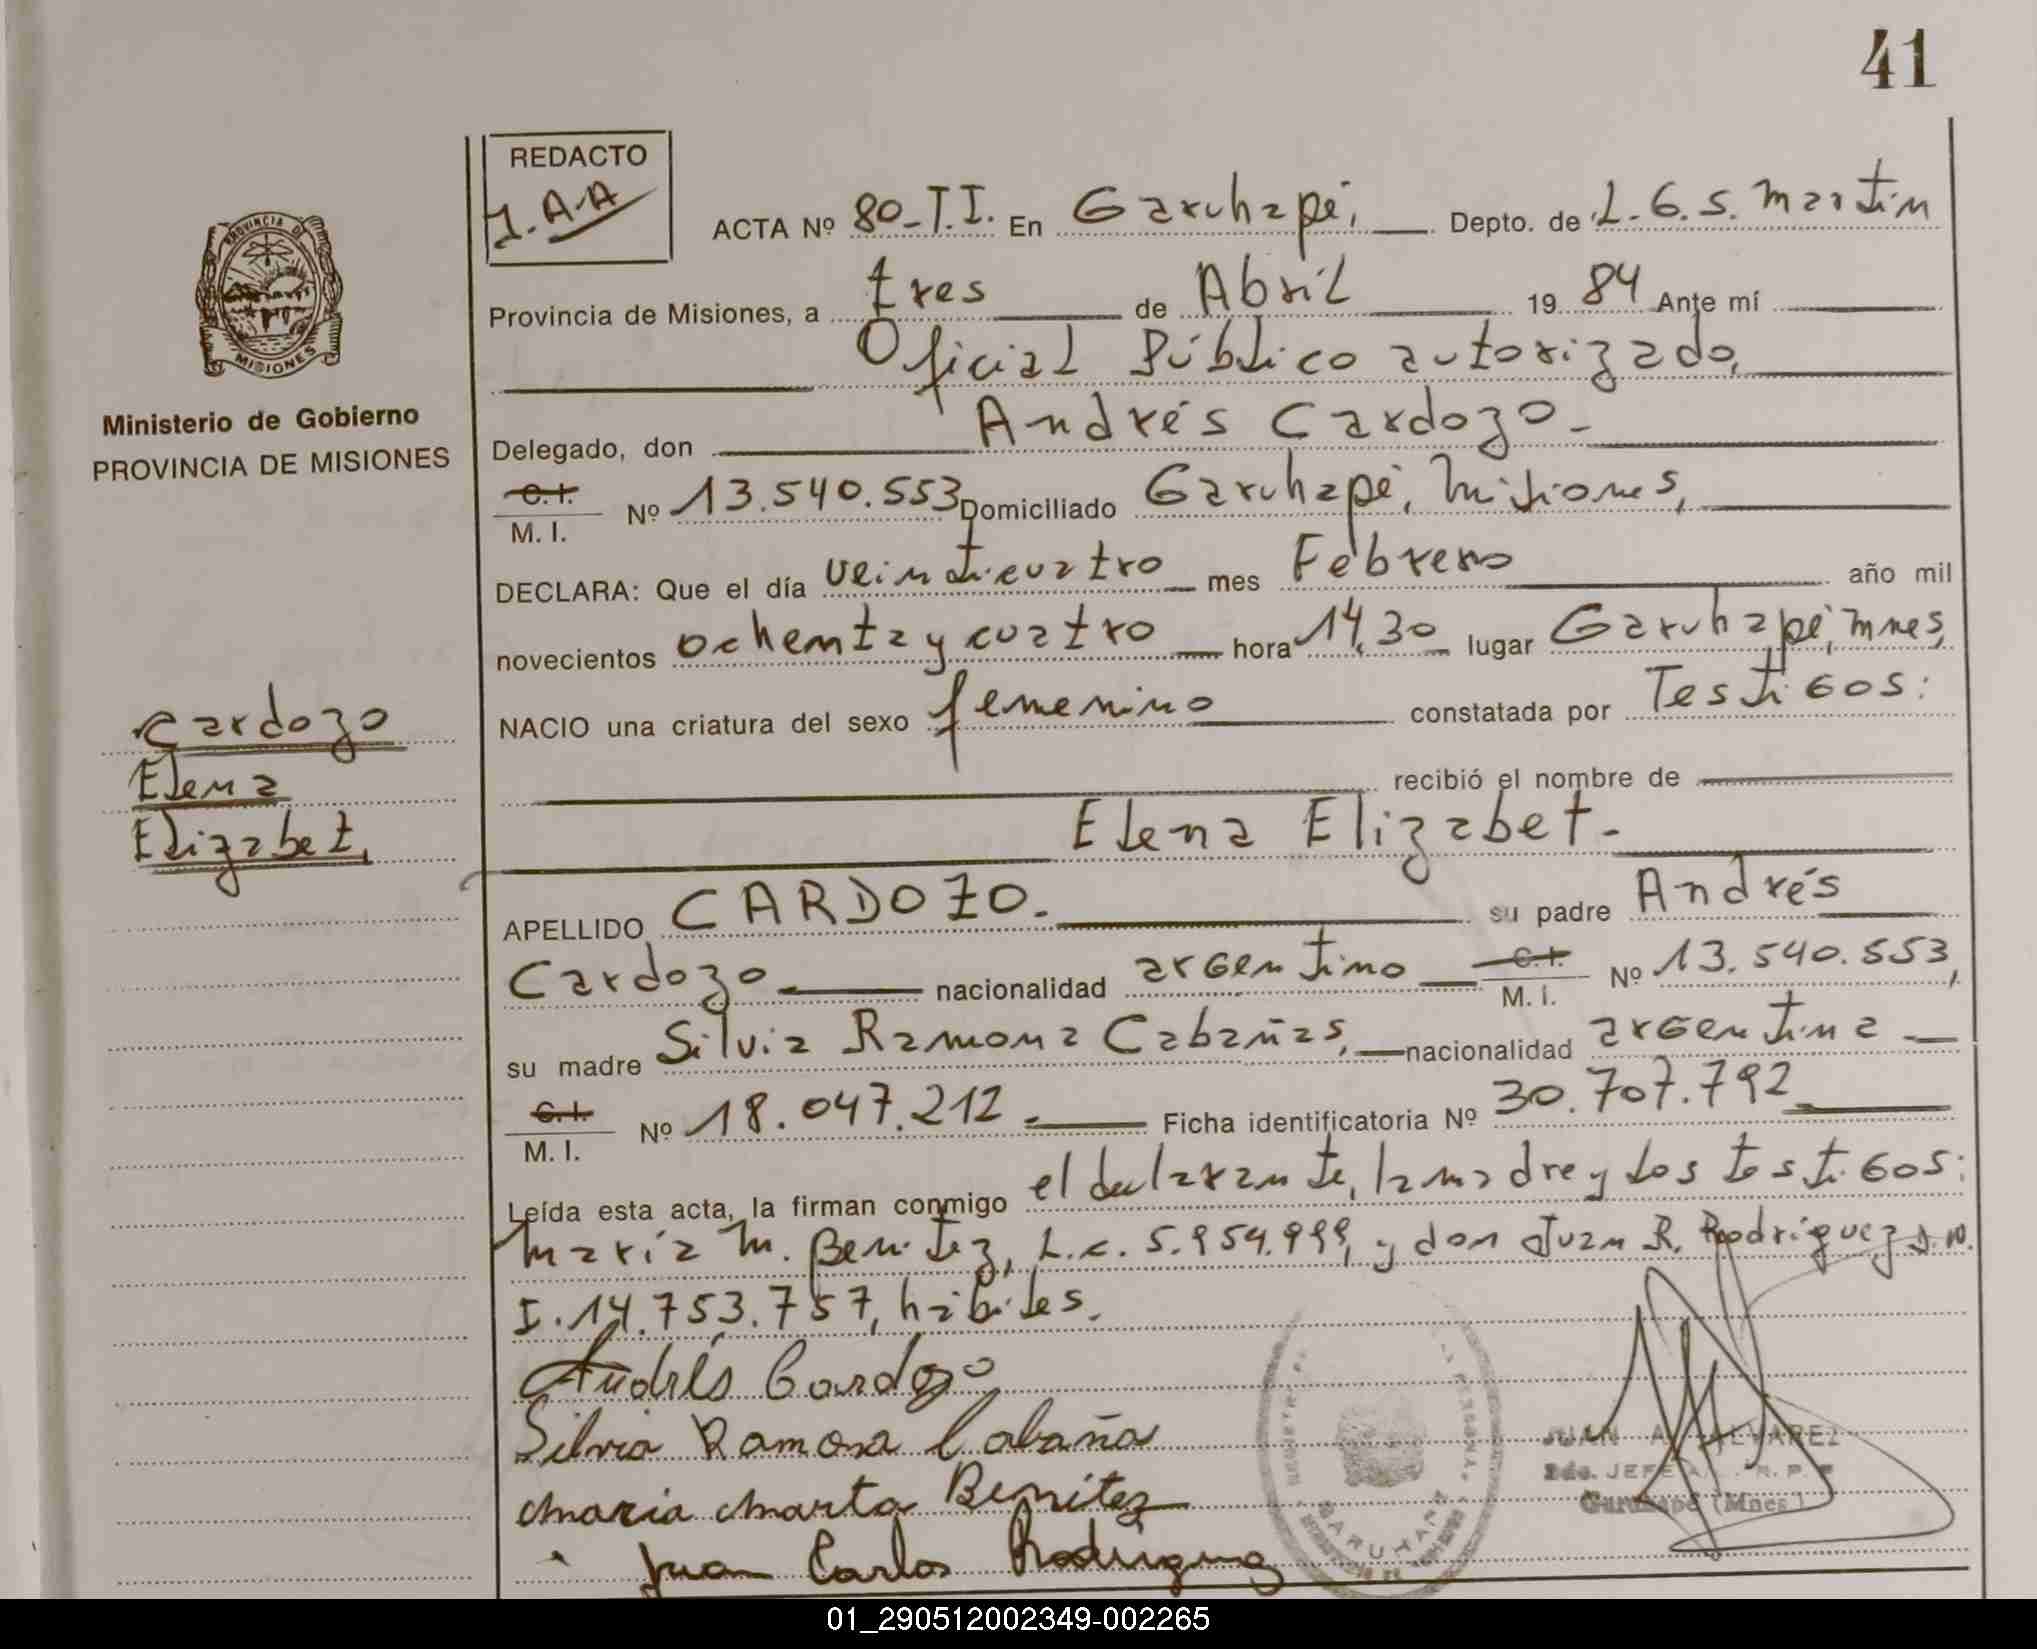 41
REDACTO
J.A.A
ACTA Nº 80-T.I. En Garuhapé, Depto. de L.G.S. Martín
Provincia de Misiones, a tres de Abril 19 84 Ante mí
Oficial Público autorizado,
Delegado, don Andrés Cardozo.
C.I. M.I. Nº 13.540.553 Domiciliado Garuhapé, Misiones,
DECLARA: Que el día veinticuatro mes Febrero año mil
novecientos ochenta y cuatro hora 14,30 lugar Garuhapé, Mnes,
NACIO una criatura del sexo femenino constatada por Testigos:
recibió el nombre de
Elena Elizabet.
APELLIDO CARDOZO. su padre Andrés
Cardozo. nacionalidad argentino C.I. M.I. Nº 13.540.553,
su madre Silvia Ramona Cabañas, nacionalidad argentina
C.I. M.I. Nº 18.047.212. Ficha identificatoria Nº 30.707.792
Leída esta acta, la firman conmigo el declarante, la madre y los testigos:
María M. Benitez, L.C. 5.954.999, y don Juan R. Rodriguez D.N.
I. 14.753.757, hábiles.
Andrés Cardozo
Silvia Ramona Cabaña
Maria Marta Benitez
Juan Carlos Rodriguez
JUAN A. ALVAREZ
2do. JEFE
Garuhapé (Mnes)
GARUHAPE
PROVINCIA DE
MISIONES
Ministerio de Gobierno
PROVINCIA DE MISIONES
Cardozo
Elena
Elizabet,
01_290512002349-002265